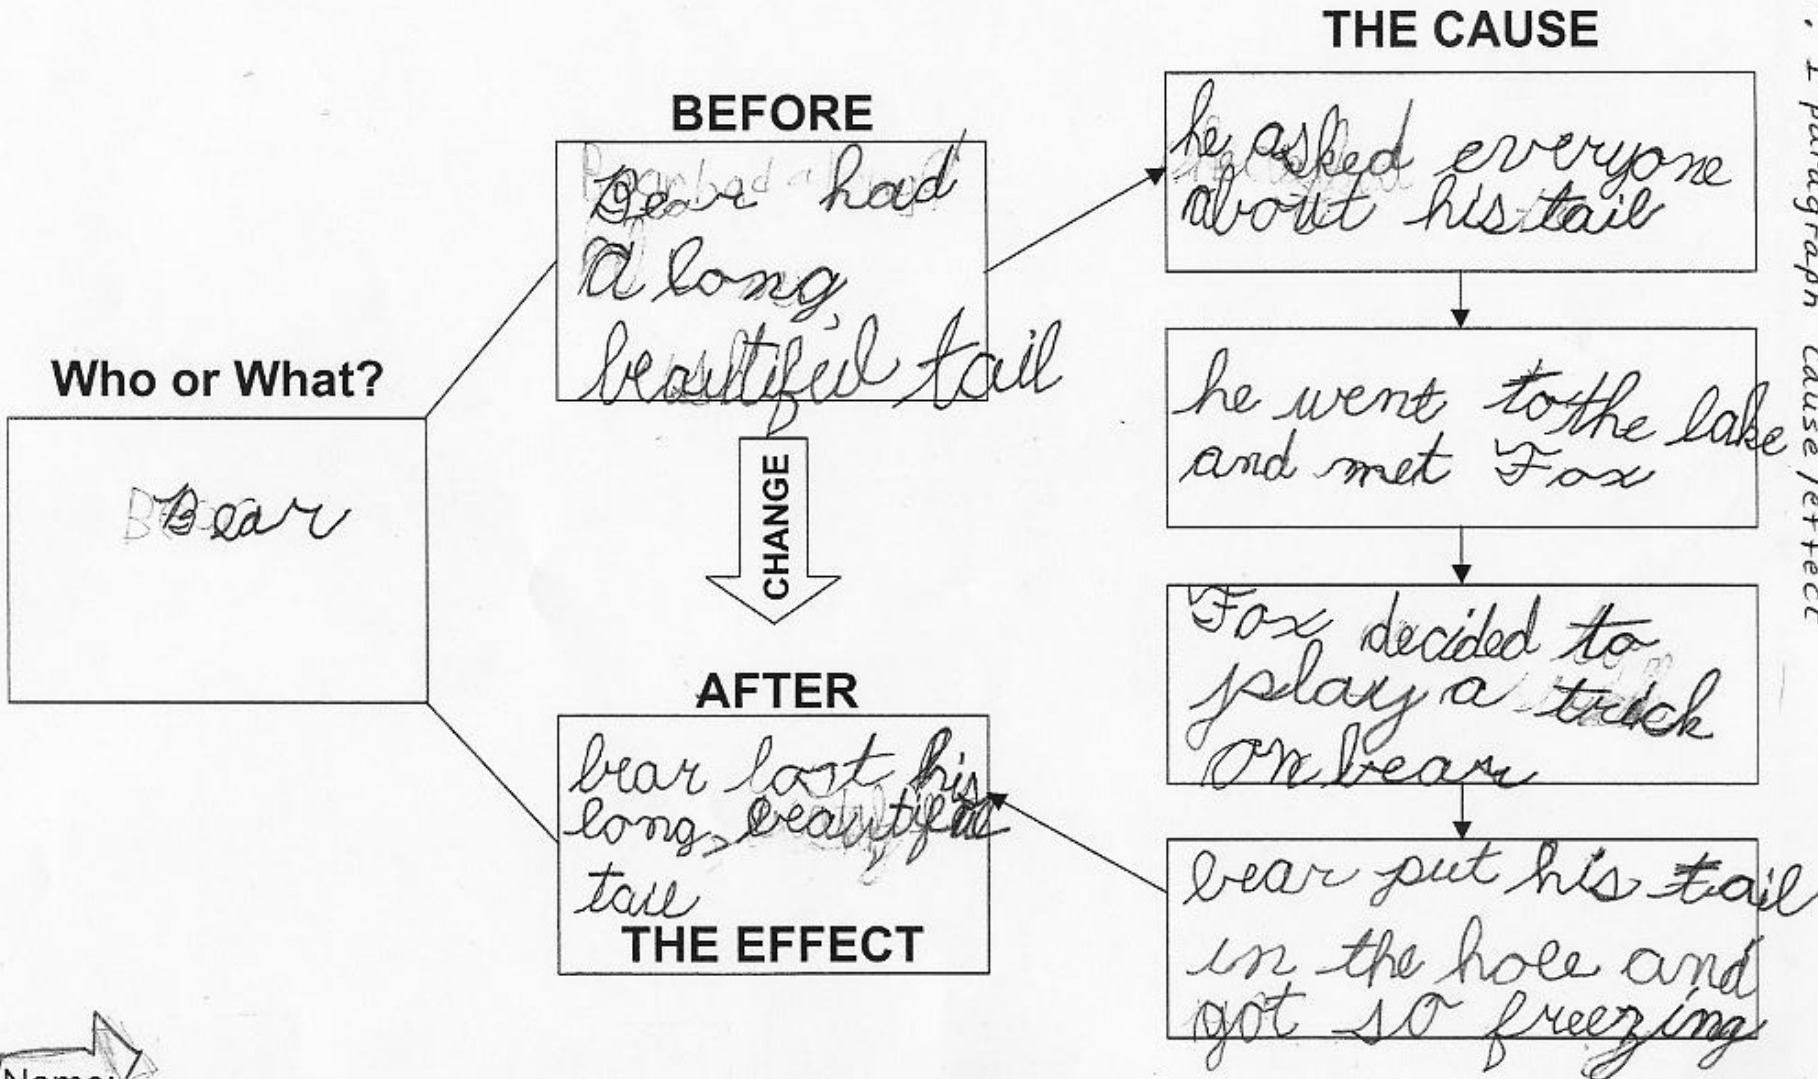 Who or What?
Bear
BEFORE
Bear had
a long,
beautiful tail
CHANGE
AFTER
bear lost his
long, beautiful
tail
THE EFFECT
THE CAUSE
he asked everyone
about his tail
he went to the lake
and met Fox
Fox decided to
play a trick
on bear
bear put his tail
in the hole and
got so freezing
1 paragraph cause/effect
Name: